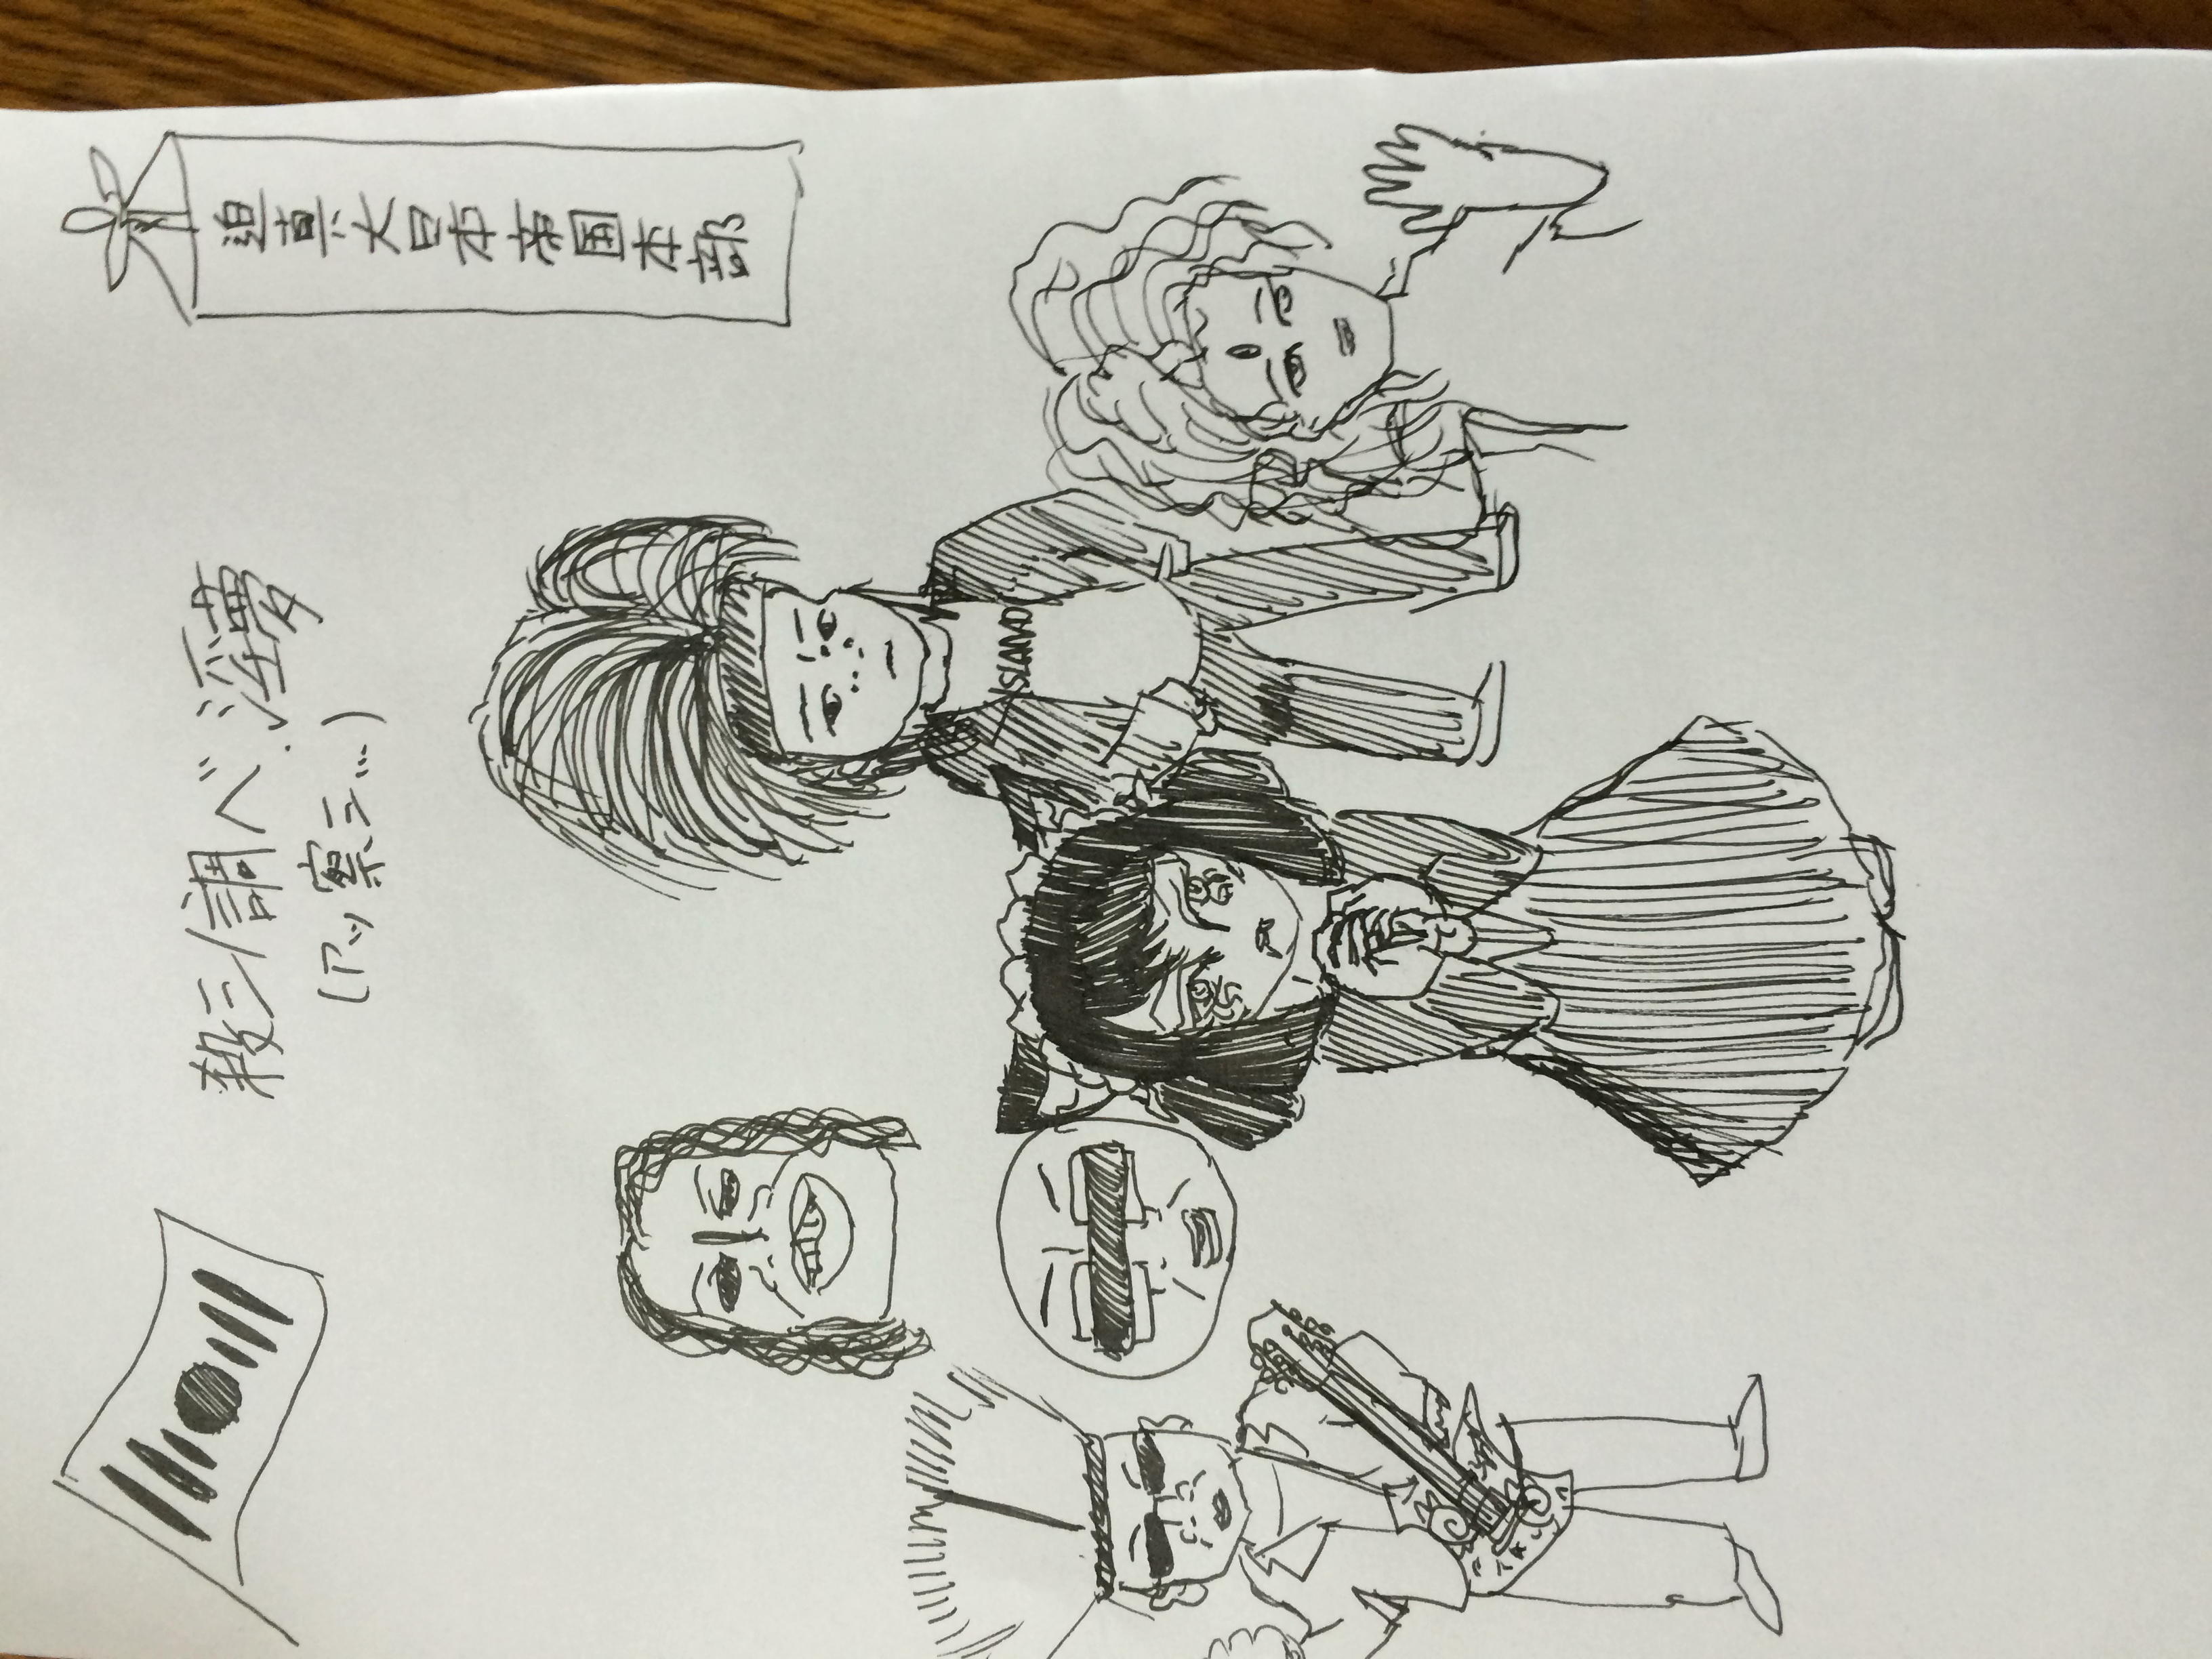 殺シ調べ.淫夢
(アッ察シ…)
迫真大日本帝国本部
ISLAND